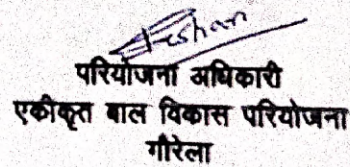 परियोजना अधिकारी
एकीकृत बाल विकास परियोजना
गौरेला